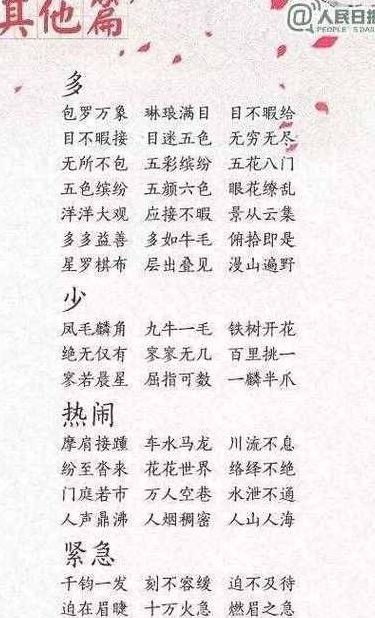 其他篇
@人民日报
PEOPLE'S DA
多
包罗万象 琳琅满目 目不暇给
目不暇接 目迷五色 无穷无尽
无所不包 五彩缤纷 五花八门
五色缤纷 五颜六色 眼花缭乱
洋洋大观 应接不暇 景从云集
多多益善 多如牛毛 俯拾即是
星罗棋布 层出叠见 漫山遍野
少
凤毛麟角 九牛一毛 铁树开花
绝无仅有 寥寥无几 百里挑一
寥若晨星 屈指可数 一鳞半爪
热闹
摩肩接踵 车水马龙 川流不息
纷至沓来 花花世界 络绎不绝
门庭若市 万人空巷 水泄不通
人声鼎沸 人烟稠密 人山人海
紧急
千钧一发 刻不容缓 迫不及待
迫在眉睫 十万火急 燃眉之急